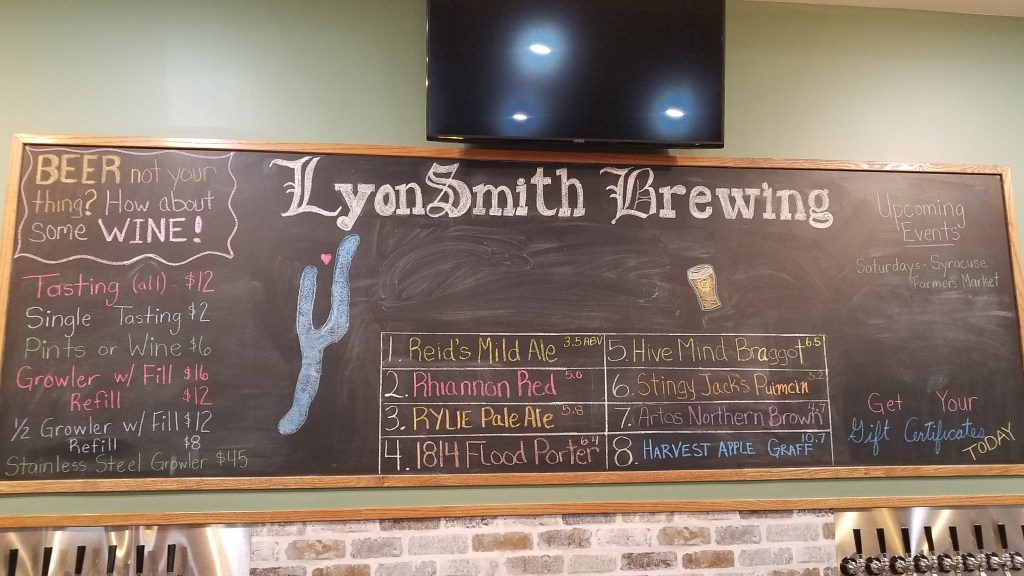 BEER not your
thing? How about
some WINE!
Tasting (all) - $12
Single Tasting $2
Pints or Wine $6
Growler w/ Fill $16
Refill $12
1/2 Growler w/ Fill $12
Refill $8
Stainless Steel Growler $45
LyonSmith Brewing
1. Reid's Mild Ale 3.5 ABV
2. Rhiannon Red 5.0
3. RYLIE Pale Ale 5.8
4. 1814 Flood Porter 6.4
5. Hive Mind Braggot 6.5
6. Stingy Jack's Puimcin 5.2
7. Artos Northern Brown 4.7
8. HARVEST APPLE GRAFF 10.7
Upcoming
Events
Saturdays - Syracuse
Farmers Market
Get Your
Gift Certificates
TODAY